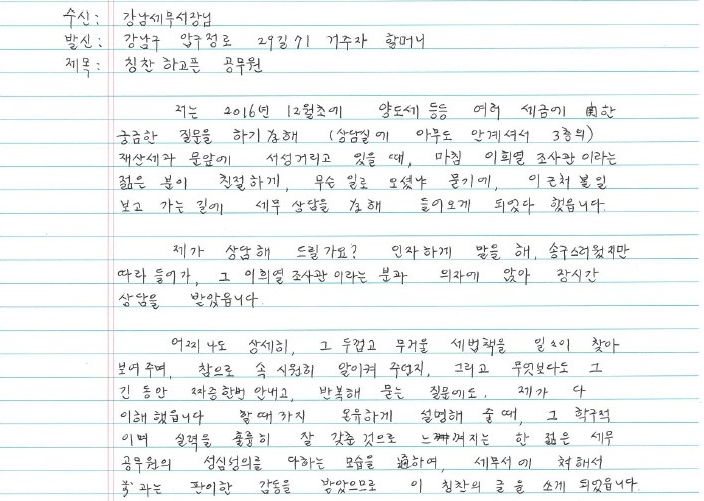 수신: 강남세무서장님
발신: 강남구 압구정로 29길 71 거주자 할머니
제목: 칭찬 하고픈 공무원
저는 2016년 12월초에 양도세 등등 여러 세금에 関한
궁금한 질문을 하기 为해 (상담실에 아무도 안계셔서 3층의)
재산세과 문앞에 서성거리고 있을 때, 마침 이희열 조사관이라는
젊은 분이 친절하게, 무슨 일로 오셨냐 묻기에, 이 근처 볼일
보고 가는 길에 세무 상담을 为해 들어오게 되었다 했읍니다.
제가 상담해 드릴가요? 인자하게 말을 해, 송구스러웠지만
따라 들어가, 그 이희열 조사관이라는 분과 의자에 앉아 장시간
상담을 받았읍니다.
어찌나도 상세히, 그 두껍고 무거울 세법책을 일일이 찾아
보여주며, 참으로 속 시원히 알이켜 주던지, 그리고 무엇보다도 그
긴 동안 짜증한번 안내고, 반복해 묻는 질문에도. 제가 다
이해했읍니다 할때까지 온유하게 설명해 줄 때, 그 학구적
이며 실력을 훌륭히 잘 갖춘것으로 느껴지는 한 젊은 세무
공무원의 성심성의를 다하는 모습을 通하여, 세무서에 처해서
과는 판이한 감동을 받았으므로 이 칭찬의 글을 쓰게 되었읍니다.